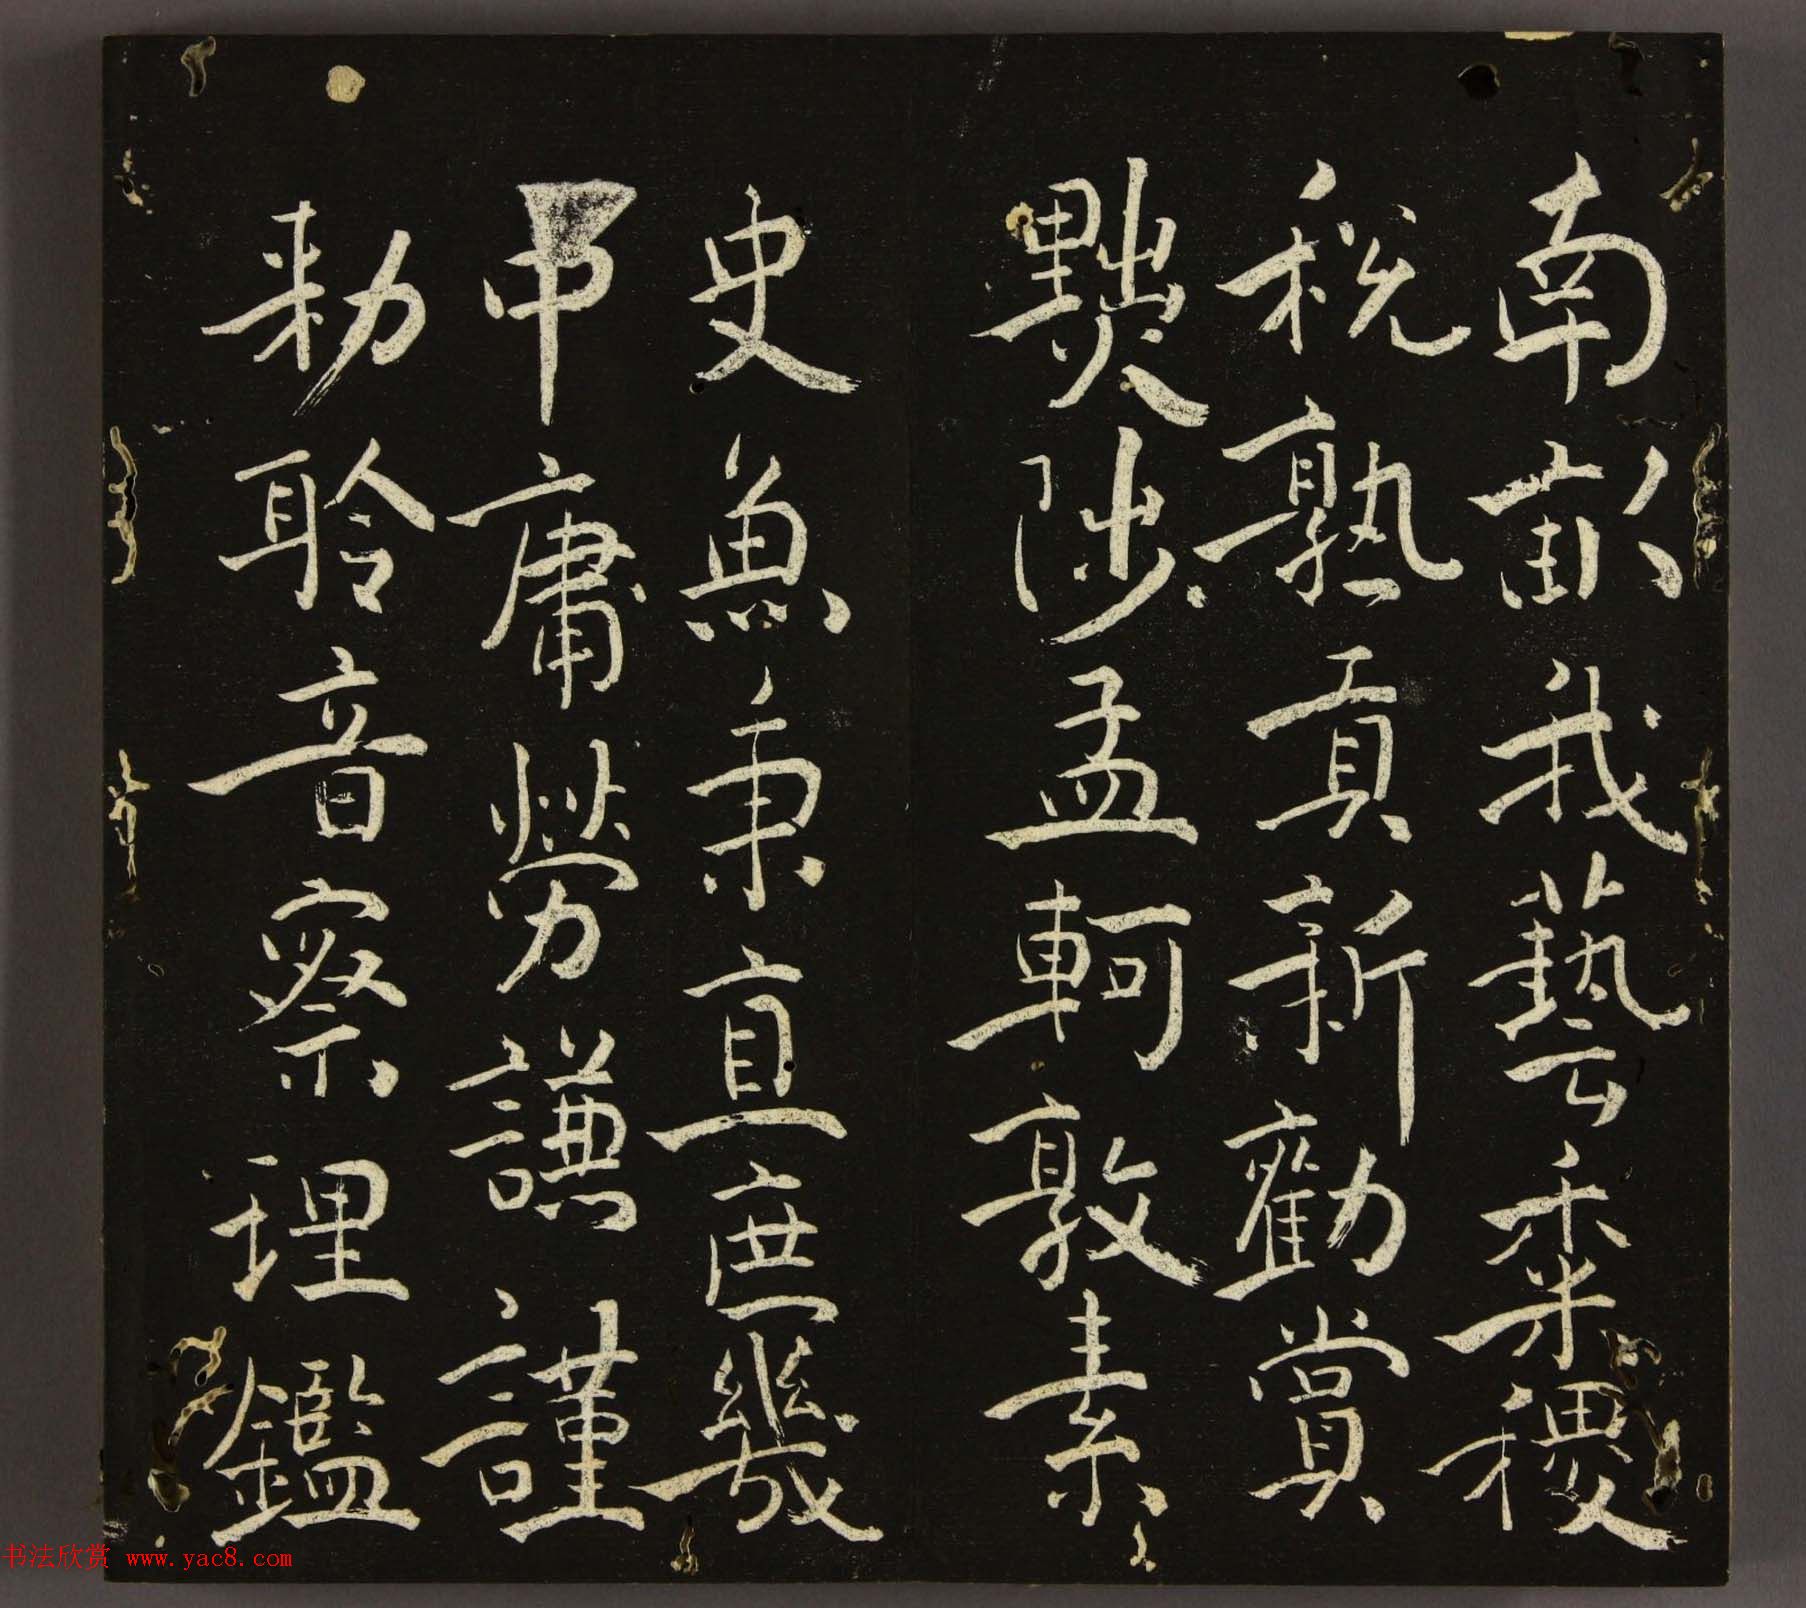 南畝我藝黍稷
稅熟貢新勸賞
黜陟孟軻敦素
史魚秉直庶幾
中庸勞謙謹
勑聆音察理鑑
书法欣赏 www.yac8.com